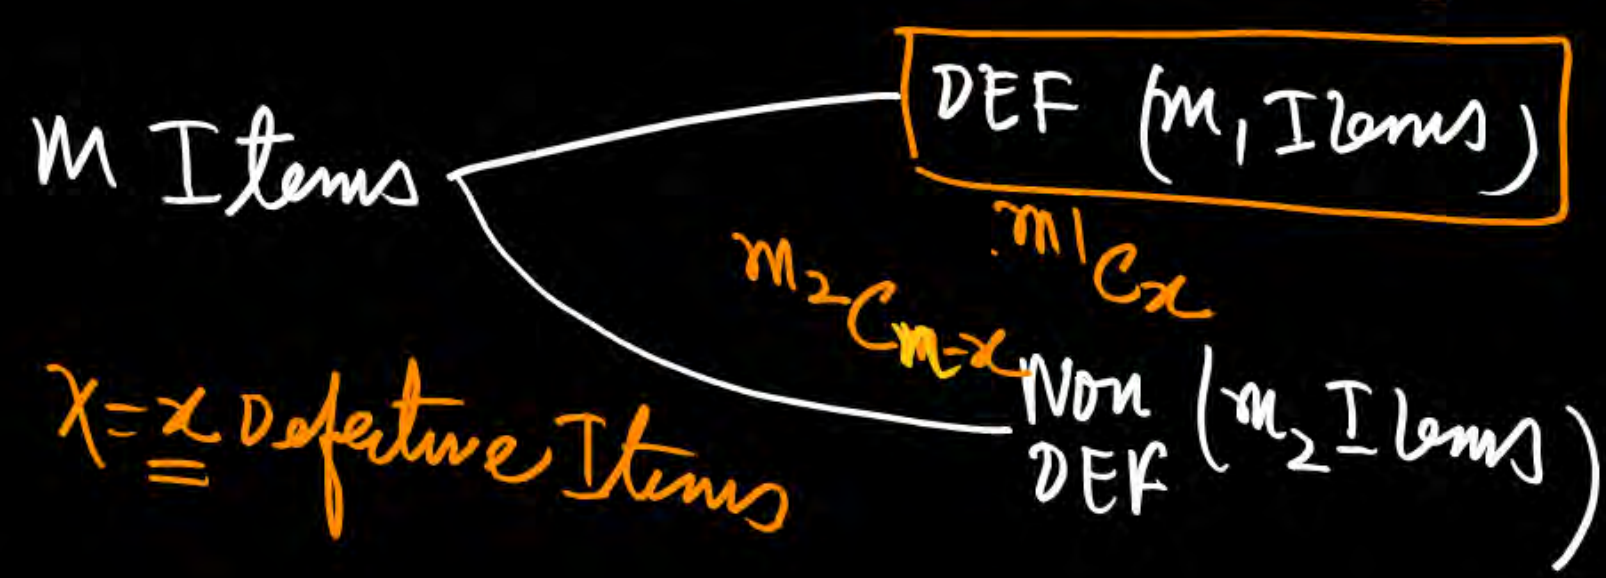 M Items
DEF (m₁ Items)
m1Cx
m₂Cm-x
Non DEF (m₂ Items)
X = x Defective Items